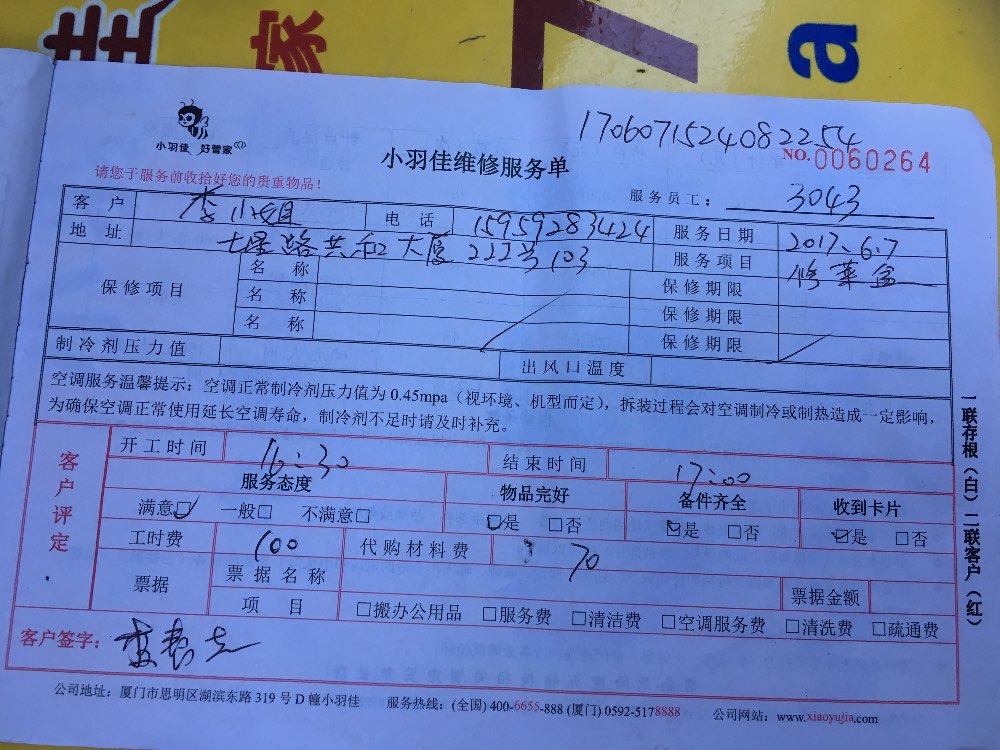 佳 家 7 a
1706071524082254
小羽佳 好管家
小羽佳维修服务单
NO.0060264
请您于服务前收拾好您的贵重物品！
服务员工： 3043
客户 李小姐 电话 15959283424 服务日期 2017、6.7
地址 路共和大厦222号103 服务项目 修菜盆
保修项目 名称 保修期限
名称 保修期限
名称 保修期限
制冷剂压力值 出风口温度
空调服务温馨提示：空调正常制冷剂压力值为 0.45mpa（视环境、机型而定），拆装过程会对空调制冷或制热造成一定影响，
为确保空调正常使用延长空调寿命，制冷剂不足时请及时补充。
客户评定
开工时间 16:30 结束时间 17:00
服务态度 物品完好 备件齐全 收到卡片
满意☑ 一般□ 不满意□ ☑是 □否 ☑是 □否 ☑是 □否
工时费 100 代购材料费 70
票据 票据名称 票据金额
项目 □搬办公用品 □服务费 □清洁费 □空调服务费 □清洗费 □疏通费
客户签字：
一联存根（白）二联客户（红）
公司地址：厦门市思明区湖滨东路 319 号 D 幢小羽佳 服务热线：(全国) 400-6655-888 (厦门) 0592-5178888 公司网站：www.xiaoyujia.com